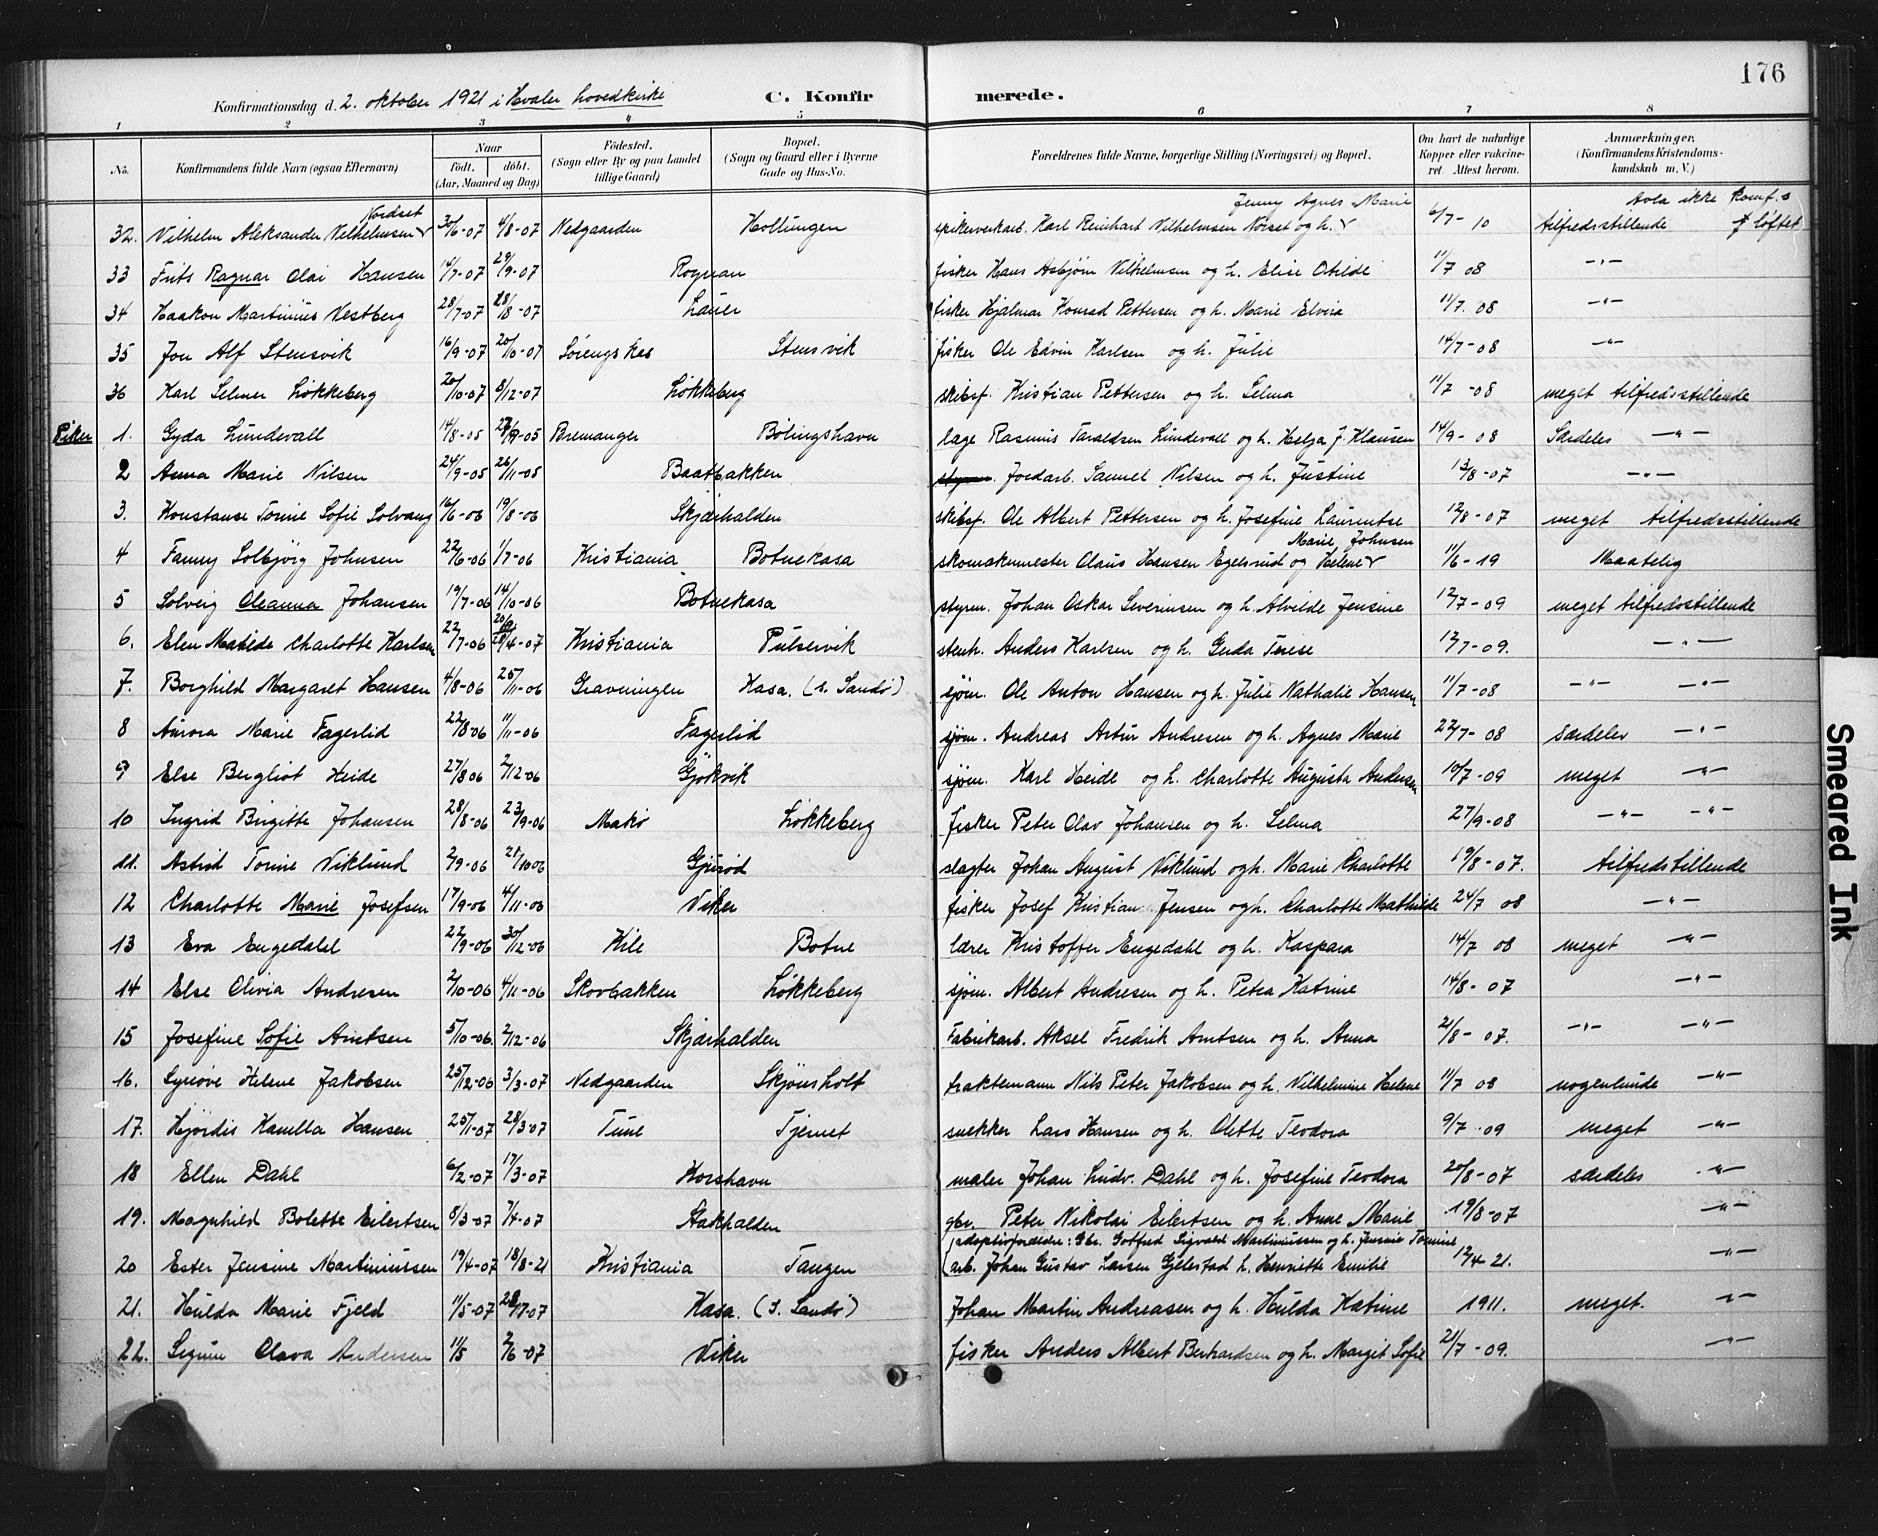 176
Konfirmationsdag d. 2. oktober 1921 i Hvaler hovedkirke C. Konfirmerede.
1 2 3 4 5 6 7 8
No. Konfirmandens fulde Navn (ogsaa Efternavn) Naar født. døbt. (Aar, Maaned og Dag) Fødested. (Sogn eller By og paa Landet tillige Gaard) Bopæl. (Sogn og Gaard eller i Byerne Gade og Hus-No. Forældrenes fulde Navne, borgerlige Stilling (Næringsvei) og Bopæl. Om havt de naturlige Kopper eller vakcineret. Attest herom. Anmærkninger. (Konfirmandens Kristendomskundskab m. V.)
Nordset Jenny Agnes Marie ikke konf.s
32. Vilhelm Aleksander Vilhelmsen 30/6-07 4/8-07 Nedgaarden Hollungen spikerverkarb. Karl Reinhart Vilhelmsen Norset og h. 6/7-10 tilfredsstillende løftet
33 Frits Ragnar Olai Hansen 14/7-07 29/9-07 Rognan fisker Hans Asbjørn Vilhelmsen og h. Elise Otilde 11/7 08 -"-
34 Haakon Martinius Vestberg 28/7-07 28/8-07 Lauer fisker Hjalmar Konrad Pettersen og h. Marie Elvira 11/7. 08 -"-
35 Jon Alf Stensvik 16/9-07 20/10-07 Stensvik fisker Ole Edvin Karlsen og h. Julie 14/7-08 -"-
36 Karl Selmer Løkkeberg 20/10-07 8/12-07 Løkkeberg skibsf. Kristian Pettersen og h. Selma 11/7 -08 meget tilfredsstillende
Piker 1. Gyda Lundevall 14/8-05 Bremanger Bølingshavn læge Rasmus Taraldsen Lundevall og h. Helga J. Klausen 14/9-08 Særdeles -"-
2 Anna Marie Nilsen 24/9-05 26/11-05 Baatbakken Jordarb. Samuel Nilsen og h. Justine 13/8-07 -"-
3. Konstanse Tomine Sofie Solvang 16/6-06 19/8-06 Skjærhalden skibsf. Ole Albert Pettersen og h. Josefine Laurentse 12/8-07 meget tilfredsstillende
Marie Johnsen
4 Fanny Solbjørg Johnsen 22/6-06 1/7-06 Kristiania Botnekasa skomakermester Claus Hansen Egelsrud og Helene 11/6-19 Maatelig
5 Solveig Oleanna Johansen 19/7-06 14/10-06 Botnekasa styrm. Johan Oskar Severinsen og h. Alvilde Jensine 12/7-09 meget tilfredsstillende
6. Elen Matilde Charlotte Karlsen 22/7-06 28/4-07 Kristiania Pulservik stenh. Anders Karlsen og h. Guda Terese 12/7-09. -"-
7. Borghild Margaret Hansen 4/8-06 25/11-06 Gravningen Kasa. (s. Sandø) sjøm. Ole Anton Hansen og h. Julie Nathalie Hansen 11/7-08 -"- -"-
8 Aurora Marie Fagerlid 22/8-06 11/11-06 Fagerlid sjøm. Andreas Artur Andresen og h. Agnes Marie 22/7-08 særdeles -"-
9 Else Bergliot Heide 27/8 06 2/12-06 Gjøkvik sjøm. Karl Heide og h. Charlotte Augusta Andersen 10/7-09 meget -"-
10 Ingrid Birgitte Johansen 28/8-06 23/9-06 Makø Løkkeberg fisker Peter Olav Johansen og h. Selma 27/9-08 -"- -"-
11. Astrid Tomine Viklund 2/9-06 21/10 06 Gjurød slagter Johan August Viklund og h. Marie Charlotte 19/8-07. tilfredstillende
12 Charlotte Marie Josefsen 17/9-06 4/11-06 Viker fisker Josef Kristian Jensen og h. Charlotte Mathilde 24/7 08 -"-
13 Eva Engedahl 22/9-06 30/12-06 Kile Botne lærer Kristoffer Engedahl og h. Kaspara 14/7 08 meget -"-
14 Else Olivia Andresen 2/10-06 4/11-06 Skovbakken Løkkeberg sjøm. Albert Andresen og h. Petra Katrine 14/8-07 -"-
15 Josefine Sofie Arntsen 5/10-06. 2/12-06 Skjærhalden Fabrikarb. Aksel Fredrik Arntsen og h. Anna 21/8-07. -"- -"-
16. Synøve Helene Jakobsen 25/12-06 3/3-07 Nedgaarden Skjønsholt fraktemann Nils Peter Jakobsen og h. Vilhelmine Helene 11/7 08 nogenlunde -"-
17. Hjørdis Kamilla Hansen 25/1-07 28/3-07 Tune Tjernet snekker Lars Hansen og h. Olette Teodora 9/7-09 meget -"-
18 Ellen Dahl 6/2-07 17/3-07 Korshavn maler Johan Ludv. Dahl og h. Josefine Teodora 20/8-07 særdeles -"-
19. Magnhild Bolette Eilertsen 8/3-07 7/4-07 Stakhalden gbr. Peter Nikolai Eilertsen og h. Anne Marie 19/8-07 -"-
adoptivforældre: Gbr. Gotfred Sigvald Martiniussen og h. Jensine Tomine
20 Ester Jensine Martiniussen 19/4-07 18/8-21 Kristiania Tangen arb. Johan Gustav Larsen Gjelestad h. Henriette Emilie 12/4-21. -"-
21. Hulda Marie Fjeld 11/5-07 28/7-07 Kasa. (s. Sandø) Johan Martin Andreasen og h. Hulda Katrine 1911. meget. -"-
22. Signe Olava Andersen 11/5 2/6-07 Viker fisker Anders Albert Berhardsen og h. Margit Sofie 21/7-09. -"-
Smeared Ink